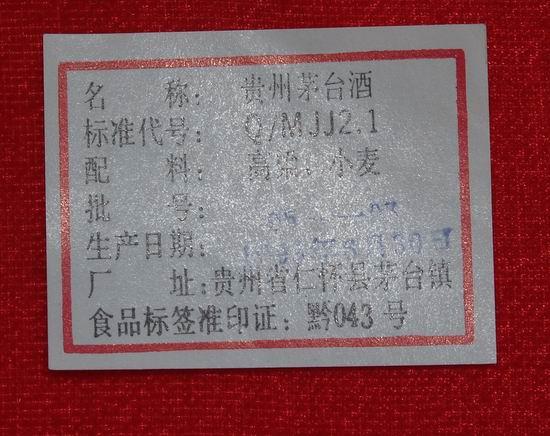 名 称：贵州茅台酒
标准代号：Q/MJJ2.1
配 料：高粱、小麦
批 号：
生产日期：
厂 址：贵州省仁怀县茅台镇
食品标签准印证：黔043号